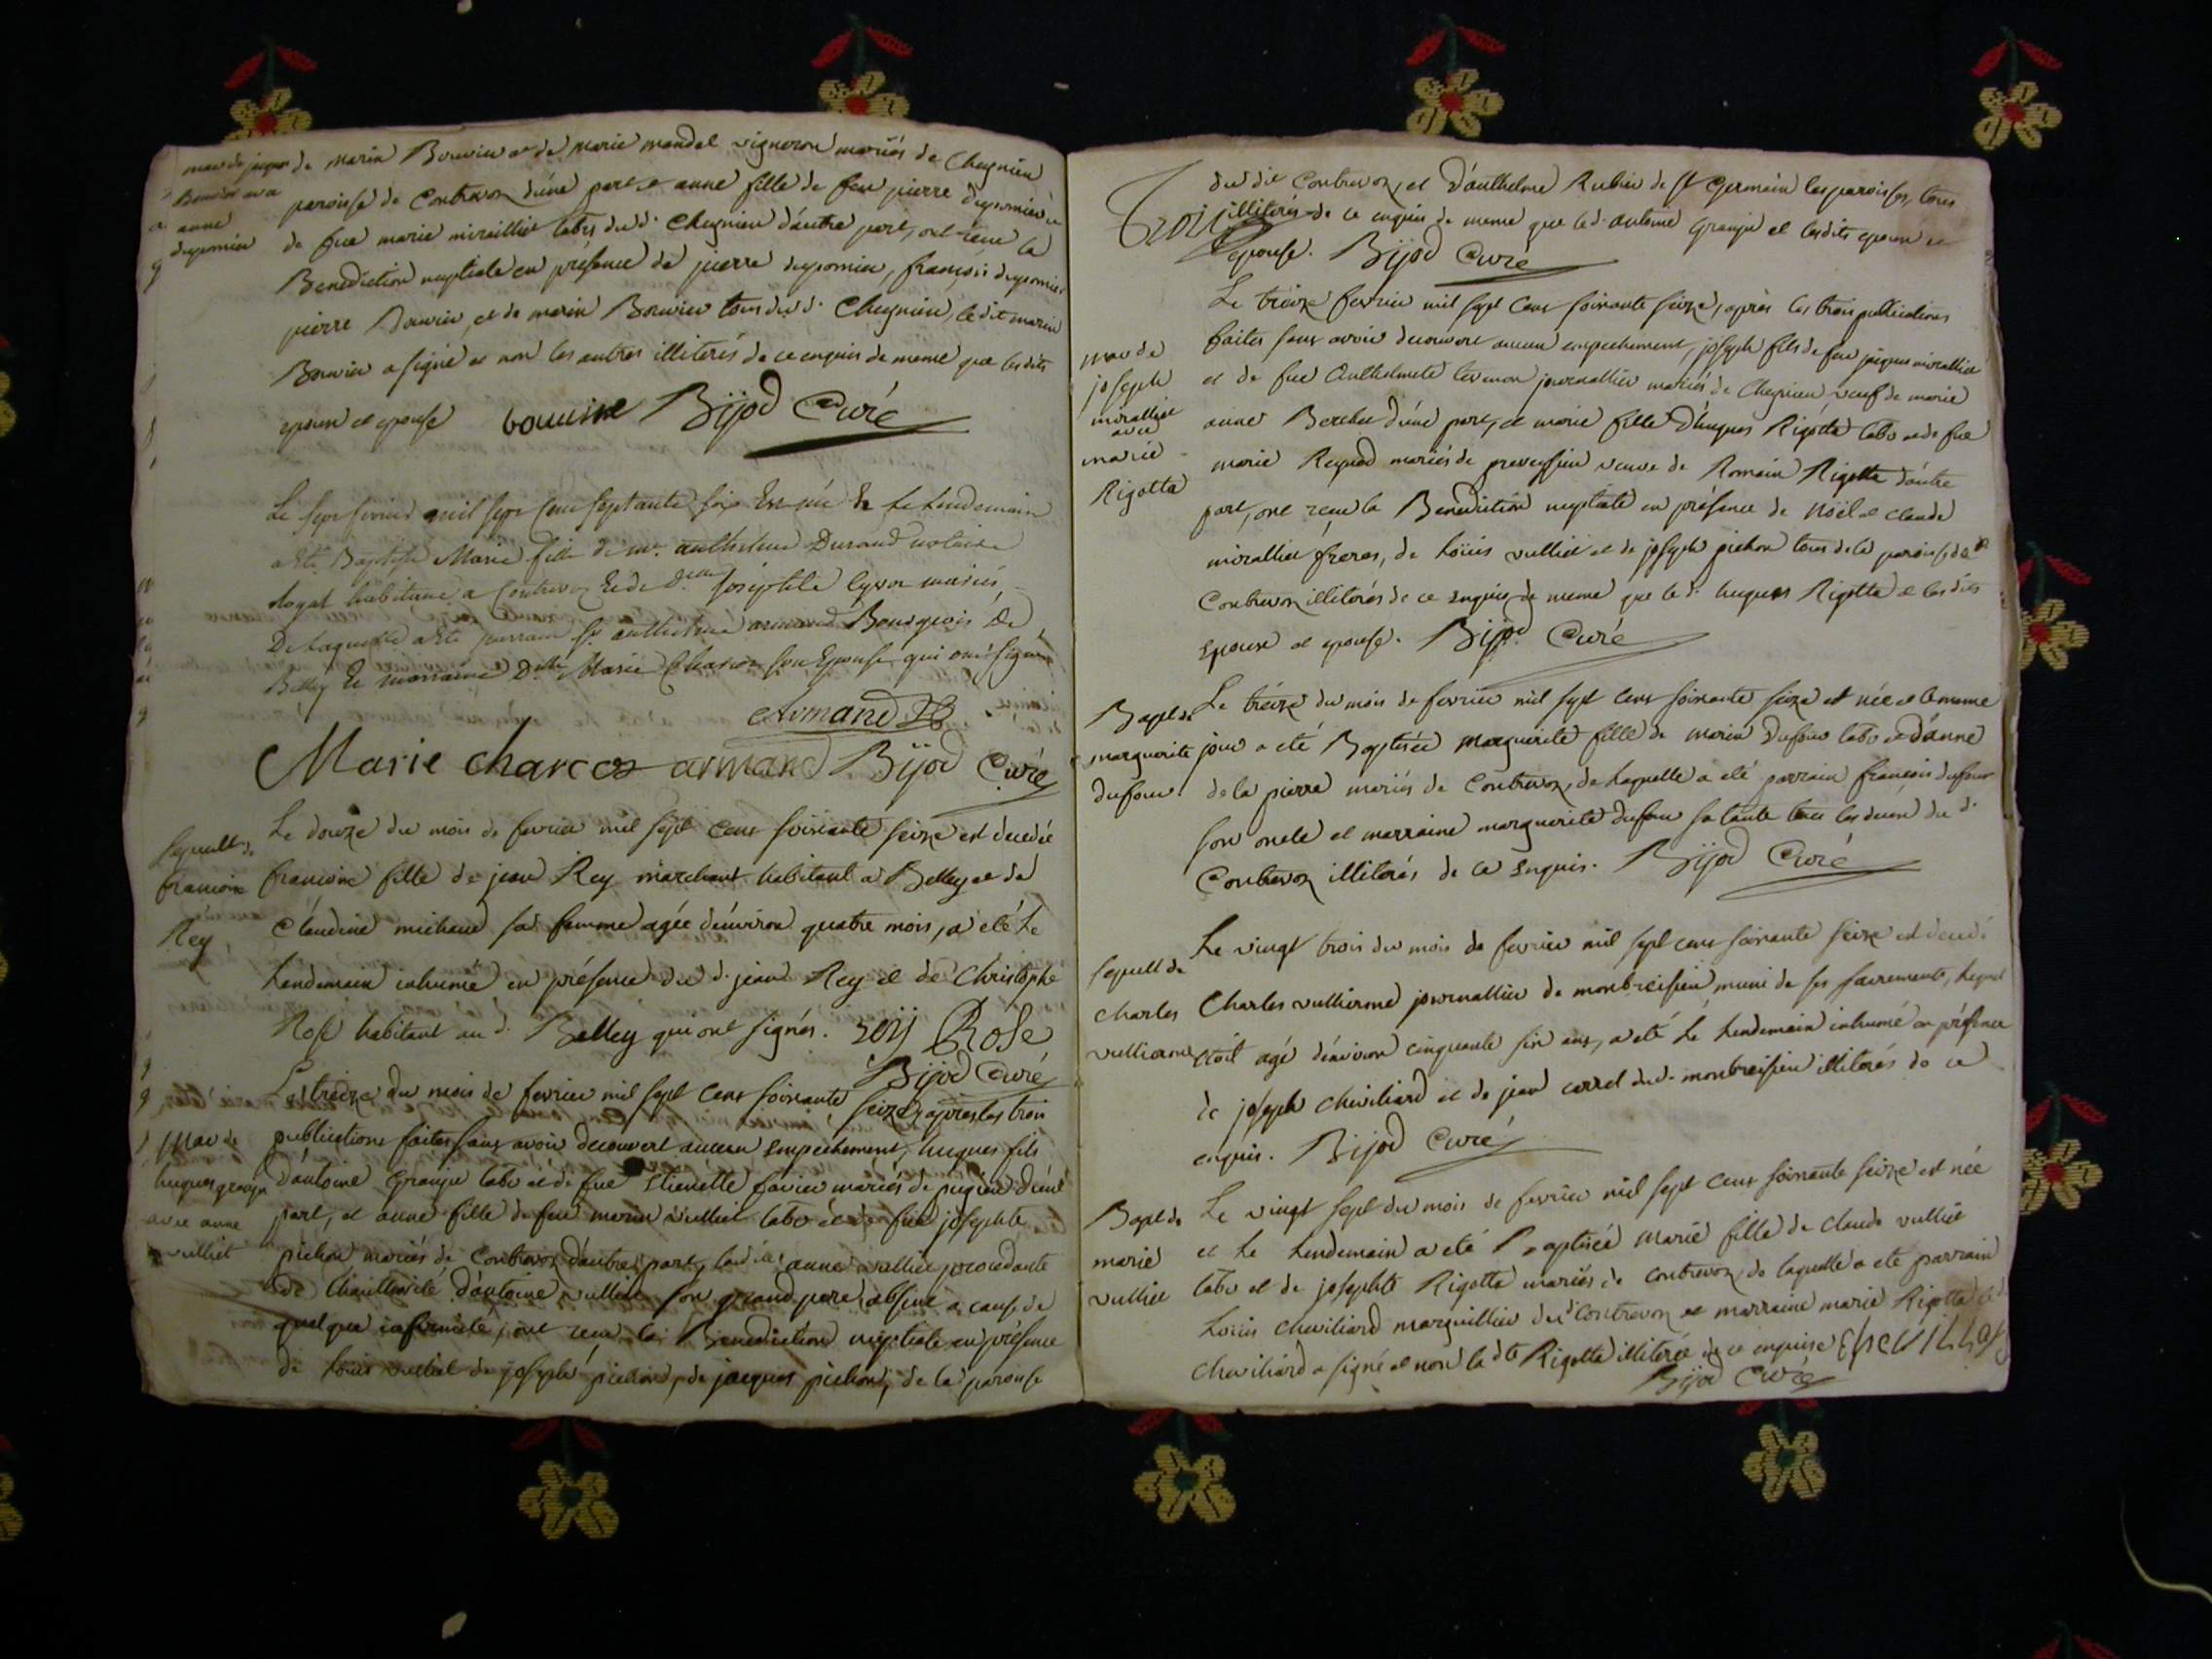 mar de jaque
Bouvier avec
anne
dupomier
de marin Bouvier et de marie mandel vigneron mariés de Chegnieu
paroisse de Contrevoz d'une part et anne fille de feu pierre dupomier et
de feue marie miraillier labrs dud. Chegnieu d'autre part, ont reçue la
Benediction nuptiale en présence de pierre dupomier, françois dupomier
pierre Bouvier, et de marin Bouvier tous dud. Chegnieu, le dit marin
Bouvier a signé et non les autres illiterés de ce enquis de meme que lesdits
epoux et epouse bouvier Bijod Curé
Le sept fevrier mil sept cent septante six Est née Et le lendemain
a Eté Baptisée Marie fille de mr. anthelme Durand notaire
Royal habitant a Contrevoz Et de Delle Josephte cyvoz mariés,
De laquelle a Eté parrain Sr anthelme armand Bourgeois De
Belley Et marraine Delle Marie Charcos son Epouse qui ont signé
Armand
Marie charcos armand Bijod Curé
Sepult. de
françoise
Rey
Le douze du mois de fevrier mil sept cent soixante seize est decedée
françoise fille de jean Rey marchant habitant a Belley et de
Claudine michaud sa femme agée d'environ quatre mois, a eté le
lendemain inhumé en présence du d. jean Rey et de Christophe
Rose habitant au d. Belley qui ont signés. Rey Rose
Bijod Curé
Mar de
hugues grangie
avec anne
vulliet
Le treize du mois de fevrier mil sept cent soixante seize, apres les trois
publications faites sans avoir decouvert aucun empechement, hugues fils
d'antoine Grangie labr et de feue Etienette favier mariés de pugieu d'une
part, et anne fille de feu marin vulliet labr et de feue josephte
pichon mariés de Contrevoz d'autre part, lad. anne vulliet procedante
de l'authorité d'antoine vulliet son grand pere absent a cause de
quelque infirmité, ont reçu la Benediction nuptiale en présence
de Louis vulliet de joseph pichon, de jacques pichon, de la paroisse
du dit Contrevoz, et d'anthelme Rubier de St Germain les paroisses, tous
illiterés de ce enquis de meme que led. antoine Grangie et lesdits epoux et
epouse. Bijod Curé
mar de
joseph
mirallier
avec
marie
Rigotta
Le treize fevrier mil sept cent soixante seize, après les trois publications
faites sans avoir decouvert aucun empechement, joseph fils de feu jaques mirallier
et de feue Anthelmete termoz journallier mariés de Chegnieu veuf de marie
anne Berchet d'une part, et marie fille d'hugues Rigotta labr et de feue
marie Reynod mariés de preveyssieu veuve de Romain Rigotta d'autre
part, ont reçue la Benediction nuptiale en présence de Noël et claude
mirallier freres, de Loüis vulliet et de joseph pichon tous de la paroisse de
Contrevoz illiterés de ce enquis de meme que le d. hugues Rigotta et les dits
epoux et epouse. Bijod Curé
Bapt. de
marguerite
dufour
Le treize du mois de fevrier mil sept cent soixante seize est née et le meme
jour a eté Baptisée marguerite fille de marin Dufour labr et d'anne
de la pierre mariés de Contrevoz, de laquelle a eté parrain françois dufour
son oncle et marraine marguerite dufour sa tante tous les deux du d.
Contrevoz illiterés de ce enquis. Bijod Curé
sepult de
charles
vullierme
Le vingt trois du mois de fevrier mil sept cent soixante seize est decedé
Charles vullierme journallier de montbreisieu, muni de ses sacrements, lequel
etoit agé d'environ cinquante six ans, a eté le lendemain inhumé en présence
de joseph cheviliard et de jean carrel dud. montbreisieu illiterés de ce
enquis. Bijod Curé
Bapt. de
marie
vulliet
Le vingt sept du mois de fevrier mil sept cent soixante seize est née
et le lendemain a eté Baptisée marie fille de claude vulliet
labr et de josephte Rigotta mariés de contrevoz, de laquelle a eté parrain
Loüis cheviliard marguillier dud. Contrevoz et marraine marie Rigotta led.
Cheviliard a signé et non la dte Rigotta illiterée de ce enquise
Bijod Curé